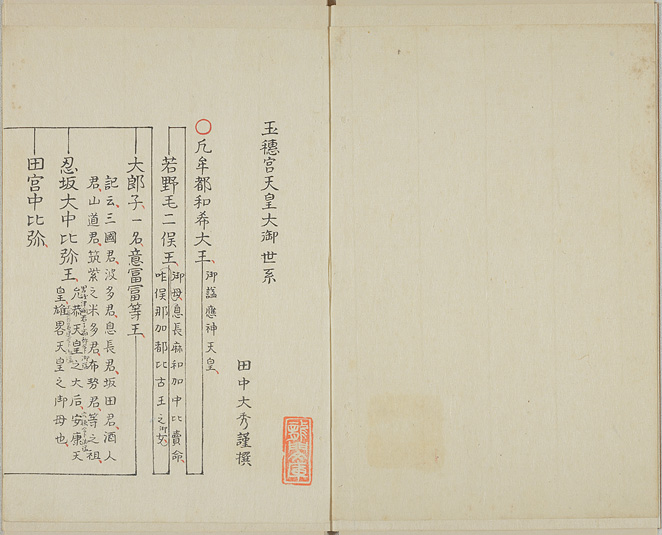 玉穗宮天皇大御世系
田中大秀謹撰
凢牟都和希大王 御諡應神天皇
若野毛二俣王 御母息長麻和加中比賣命
咋俣那加都比古王之御女
大郎子一名意富富等王
記云三國君波多君息長君坂田君酒人
君山道君筑紫之米多君布勢君等之祖
忍坂大中比弥王 允恭天皇之大后安康天
皇雄畧天皇之御母也
田宮中比弥